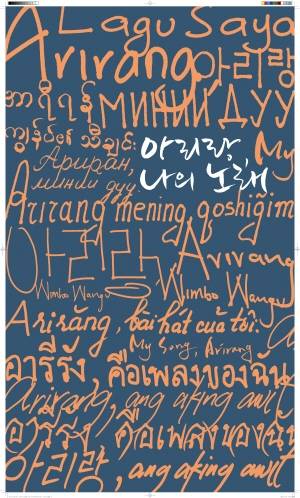 Lagu Saya
Arirang 아리랑
အာရီရန် МИНИЙ ДУУ
ကျွန်ုပ်၏ သီချင်း
아리랑, My
Ариран, 나의 노래
миний дуу
Arirang mening qoshig'im
아리랑 Arirang
Wimbo Wangu Wimbo Wangu
Arirăng, bài hát của tôi.
My Song, Arirang
อารีรัง, คือเพลงของฉัน
Arirang, ang aking awit
อารีรัง คือเพลงของฉัน
아리랑, ang aking awit